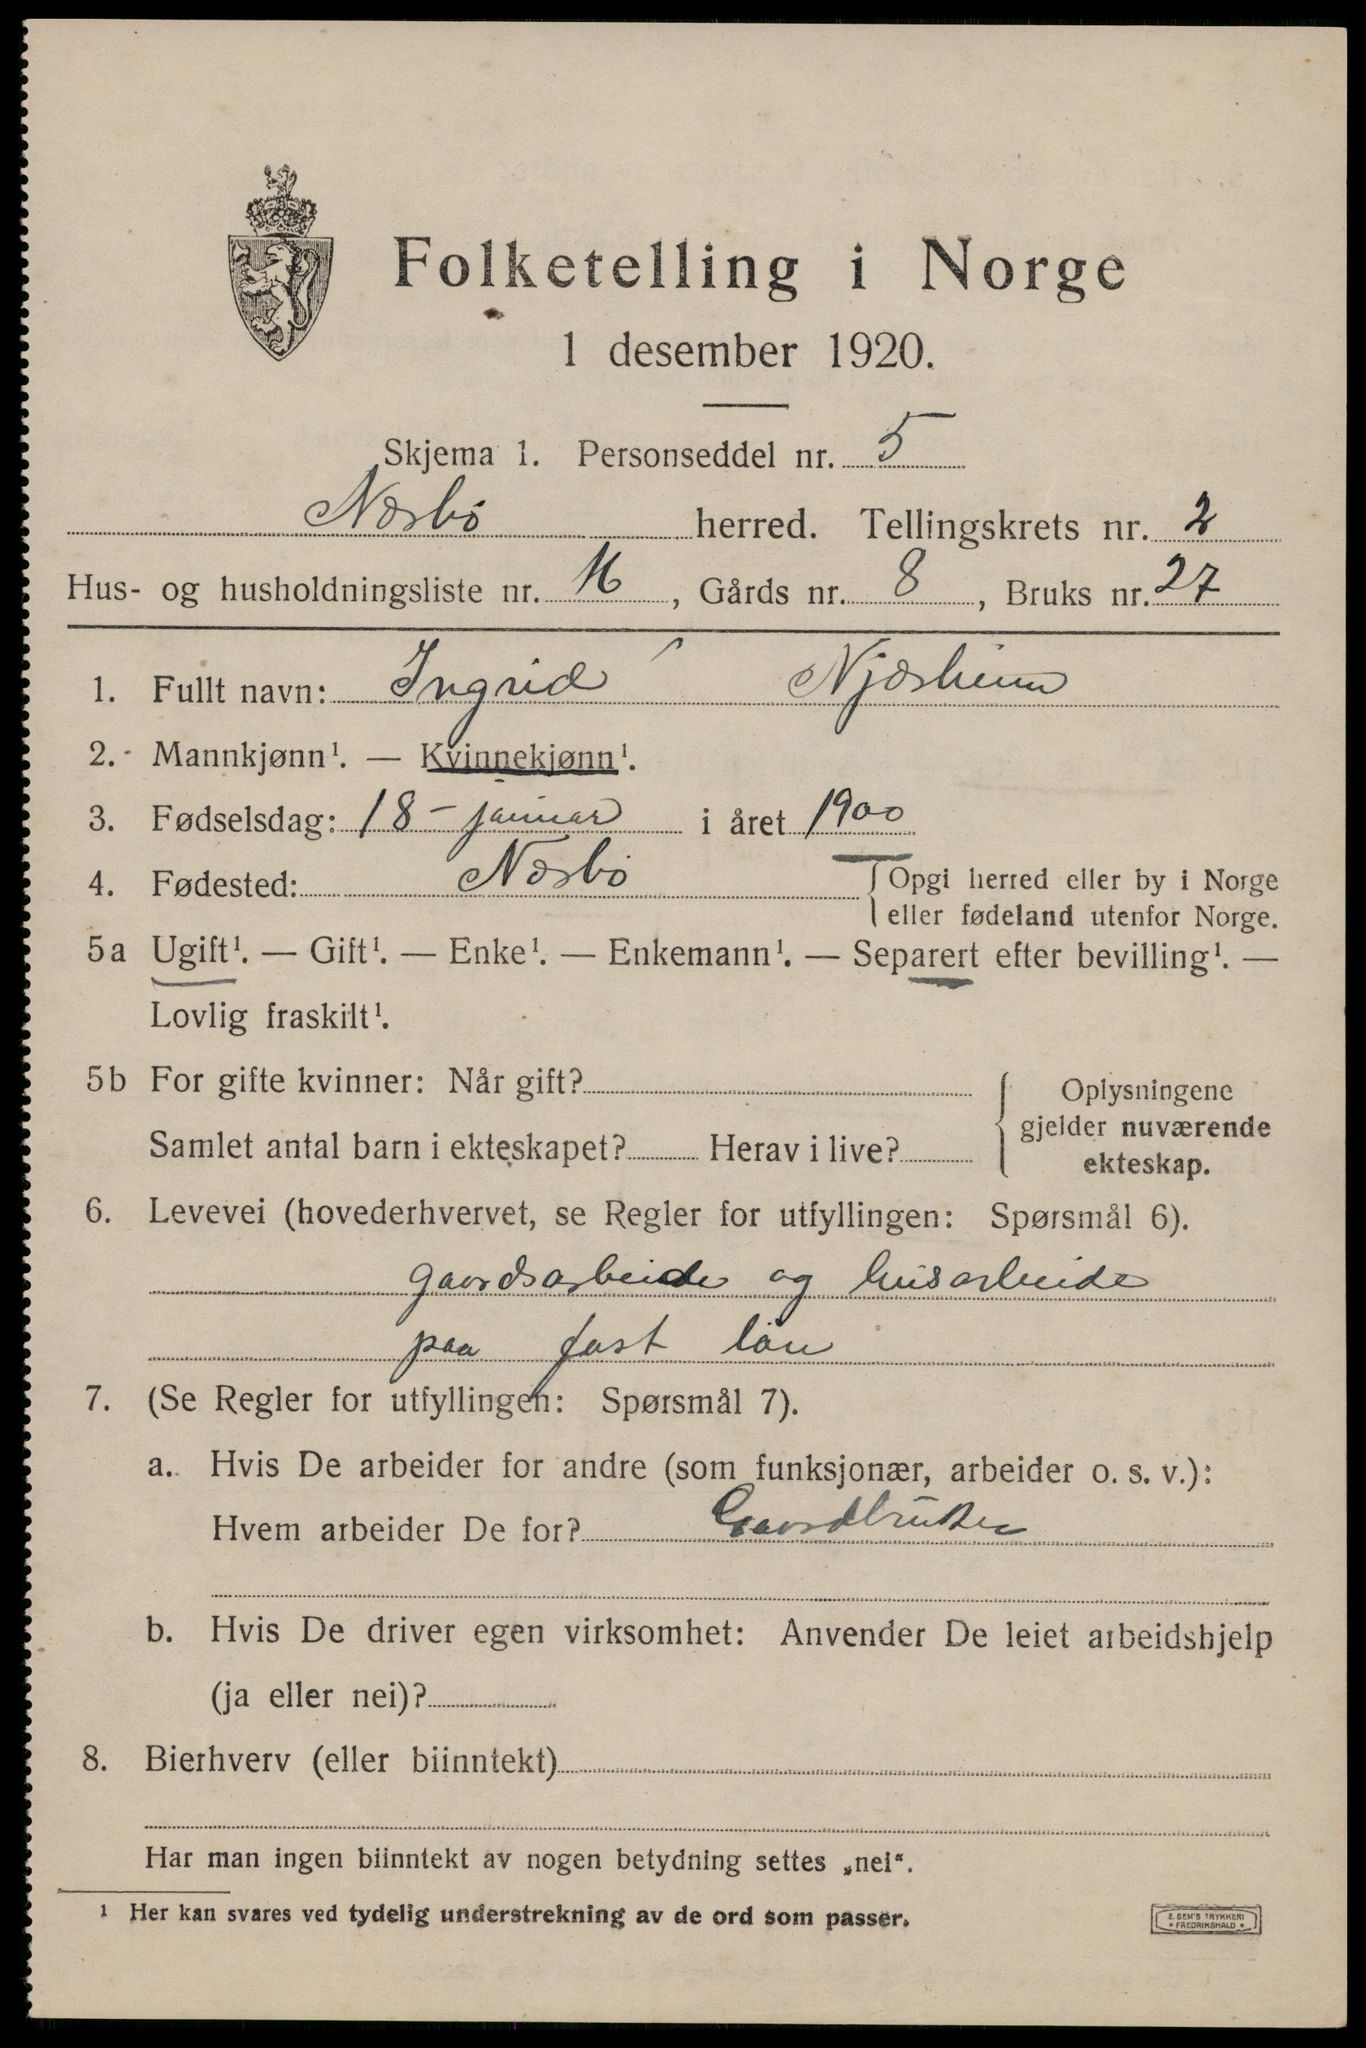 Folketelling i Norge
1 desember 1920.
Skjema 1. Personseddel nr. 5
Nærbö herred. Tellingskrets nr. 2
Hus- og husholdningsliste nr. , Gårds nr. 8, Bruks nr. 27
1. Fullt navn: Ingrid Njærheim
2. Mannkjønn¹. — Kvinnekjønn¹.
3. Fødselsdag: 18 - januar i året 1900
4. Fødested: Nærbö {Opgi herred eller by i Norge
eller fødeland utenfor Norge.
5a Ugift¹. — Gift¹. — Enke¹. — Enkemann¹. — Separert efter bevilling¹. —
Lovlig fraskilt¹.
5b For gifte kvinner: Når gift?
Samlet antal barn i ekteskapet? Herav i live?
{ Oplysningene
gjelder nuværende
ekteskap.
6. Levevei (hovederhvervet, se Regler for utfyllingen: Spørsmål 6).
gaardsarbeide og husarbeide
paa fast lön
7. (Se Regler for utfyllingen: Spørsmål 7).
a. Hvis De arbeider for andre (som funksjonær, arbeider o. s. v.):
Hvem arbeider De for? Gaardbruker
b. Hvis De driver egen virksomhet: Anvender De leiet arbeidshjelp
(ja eller nei)?
8. Bierhverv (eller biinntekt)
Har man ingen biinntekt av nogen betydning settes „nei“.
¹ Her kan svares ved tydelig understrekning av de ord som passer.
E. SEM'S TRYKKERI
* FREDRIKSHALD *